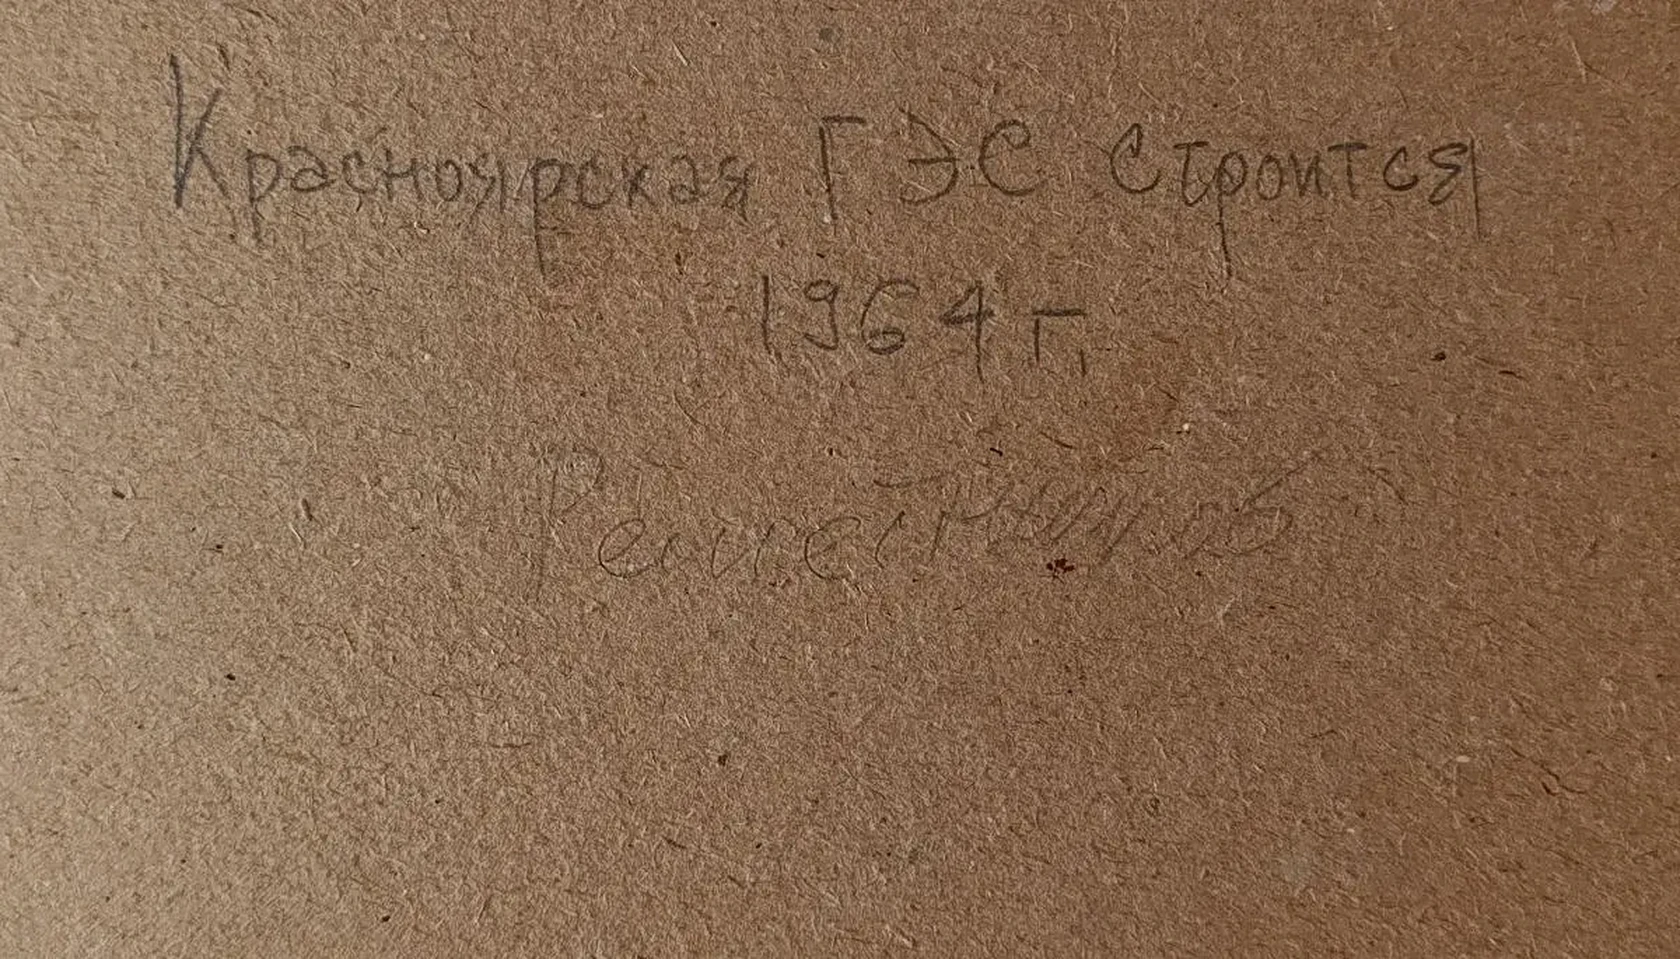 Красноярская ГЭС строится
1964 г.
Решетников